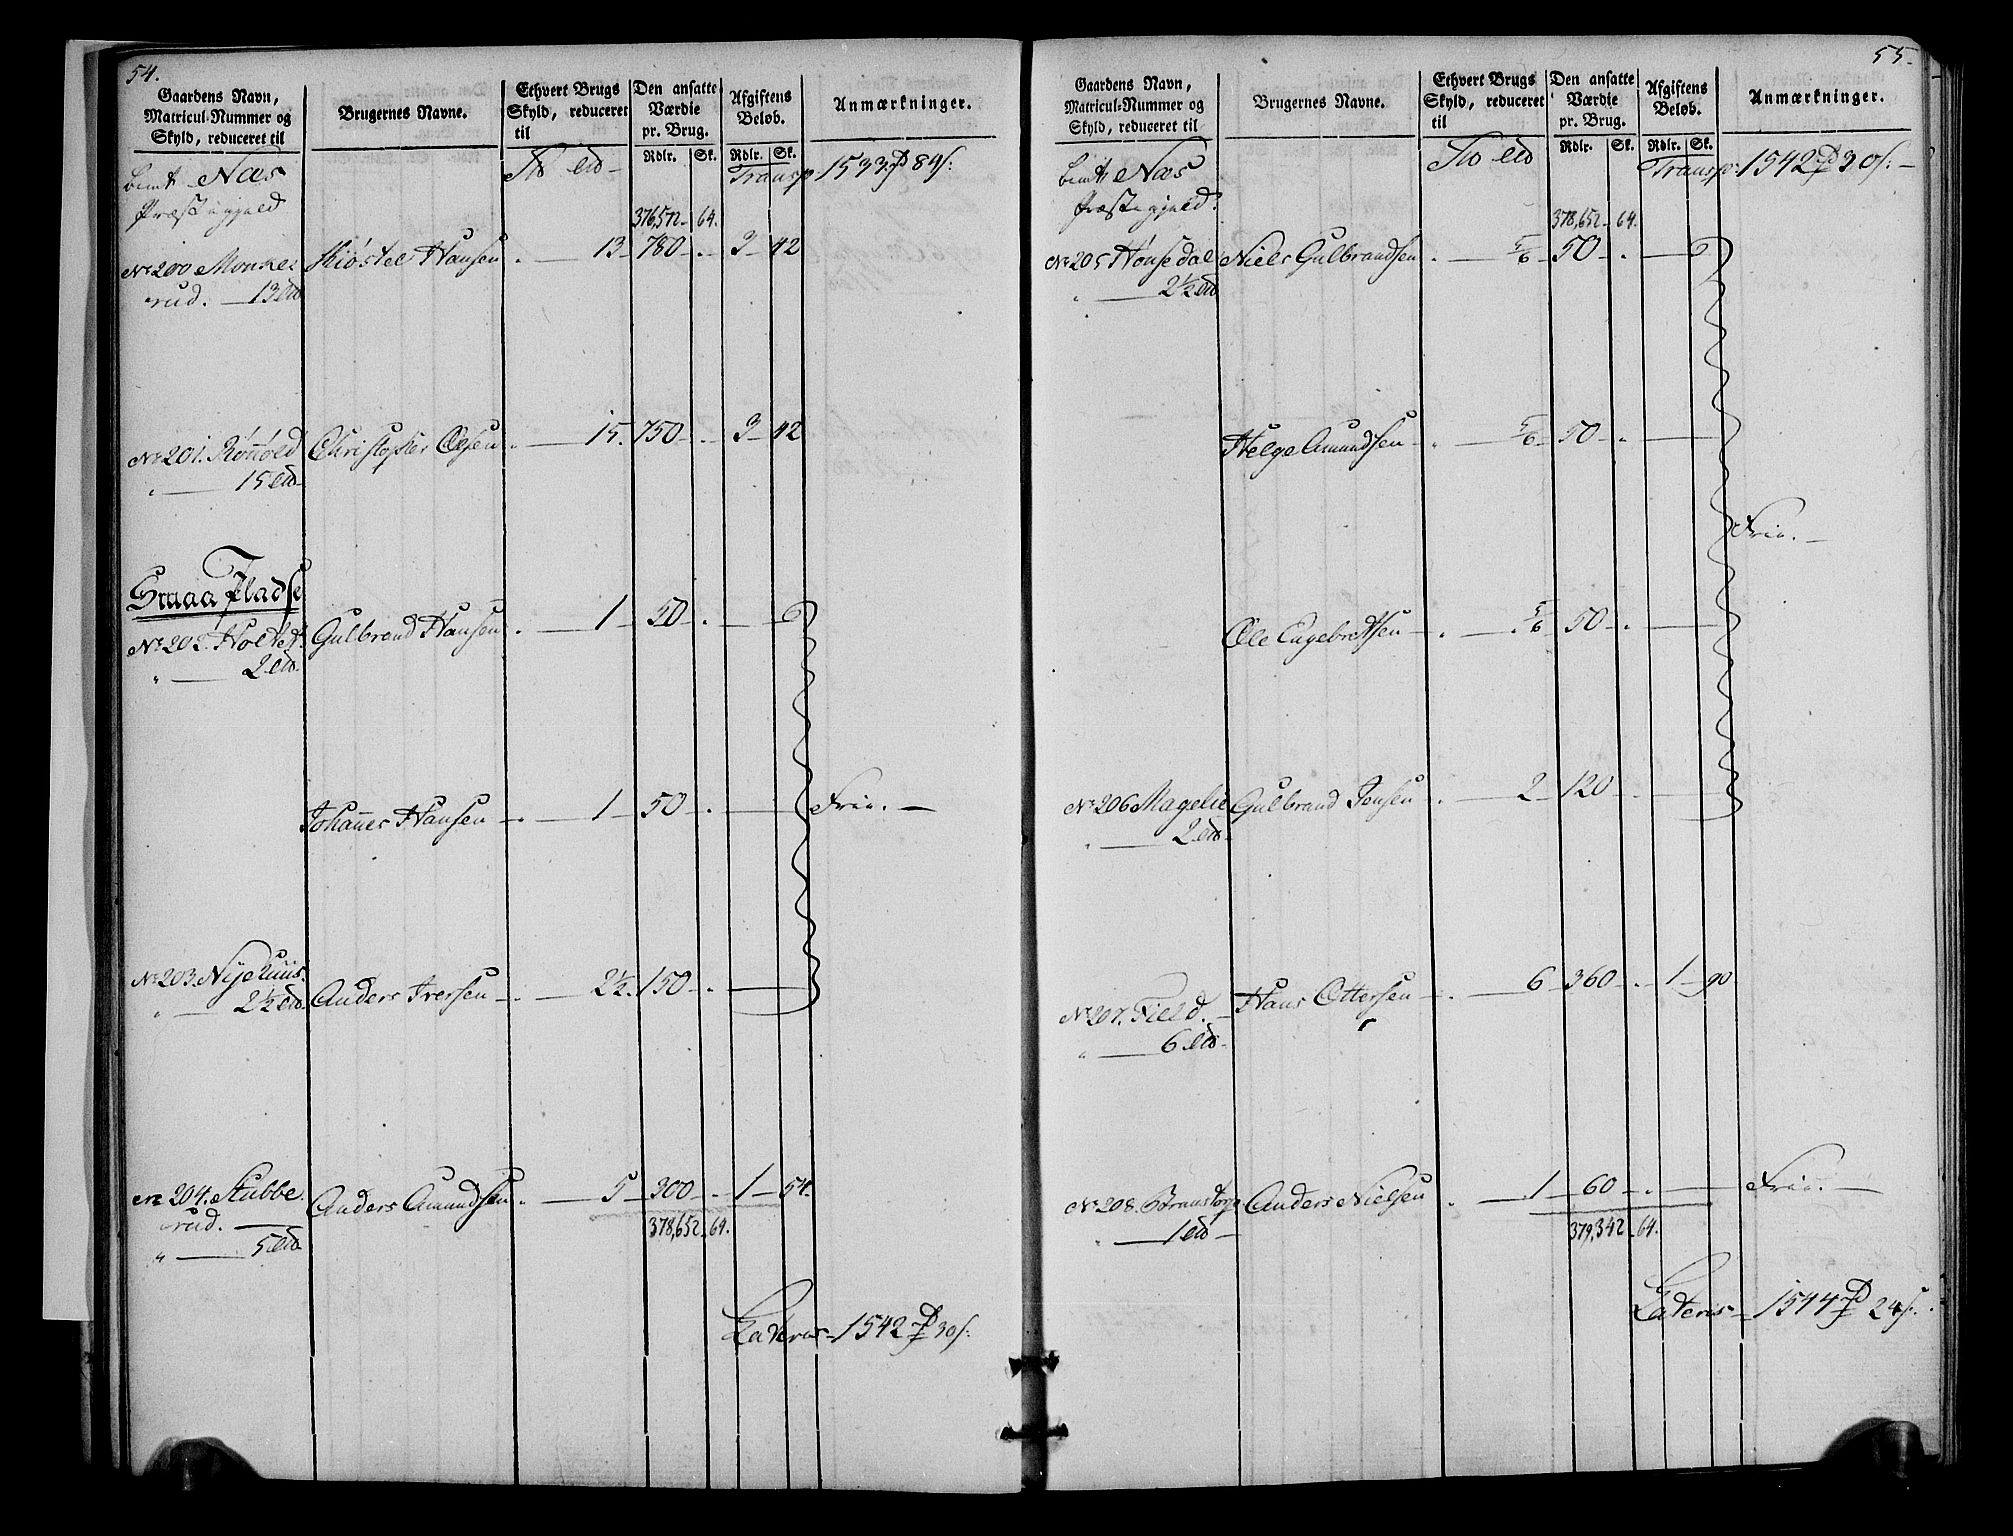 54.
Gaardens Navn, Matricul-Nummer og Skyld, reduceret til
Brugernes Navne.
Ethvert Brugs Skyld, reduceret til
Den ansatte Værdie pr. Brug.
Afgiftens Beløb.
Anmærkninger.
Rdlr. Sk. Rdlr. Sk.
Næs Transp 1533 89 s:
Præstegjeld
376,572 64.
No 200 Monke Kiøstel Hansen . 13 780 . 3 42
rud. 13
No 201. Christopher Olsen . 15. 750 . 3 42
" 15
Smaa Pladse
No 202. Gulbrand Hansen . 1 50 .
" 2
Johannes Hansen . 1 50 . Frie.
No 203. Anders Iversen . 2½. 150 .
" 2½
No 204. Stubbe Anders Amundsen . 5 300 . 1 54.
rud.
" 5
378,652 64.
Lateris 1542 30 s:
55.
Gaardens Navn, Matricul-Nummer og Skyld, reduceret til
Brugernes Navne.
Ethvert Brugs Skyld, reduceret til
Den ansatte Værdie pr. Brug.
Afgiftens Beløb.
Anmærkninger.
Rdlr. Sk. Rdlr. Sk.
Næs Transp: 1542 30 s:
Præstegjeld.
378,652 64.
No 205 Hønsedal Niels Gulbrandsen . 5/6 50 .
" 2½
Helge Amundsen . 5/6 50 .
Frie.
Ole Engebretsen . 5/6 50 .
No 206 Magelie Gulbrand Jensen . 2 120 .
" 2
No 207. Field. Hans Ottersen . 6 360 . 1 90
" 6
No 208. Anders Nielsen . 1 60 . Frie.
" 1
379,342 64.
Lateris 1544 24 s: